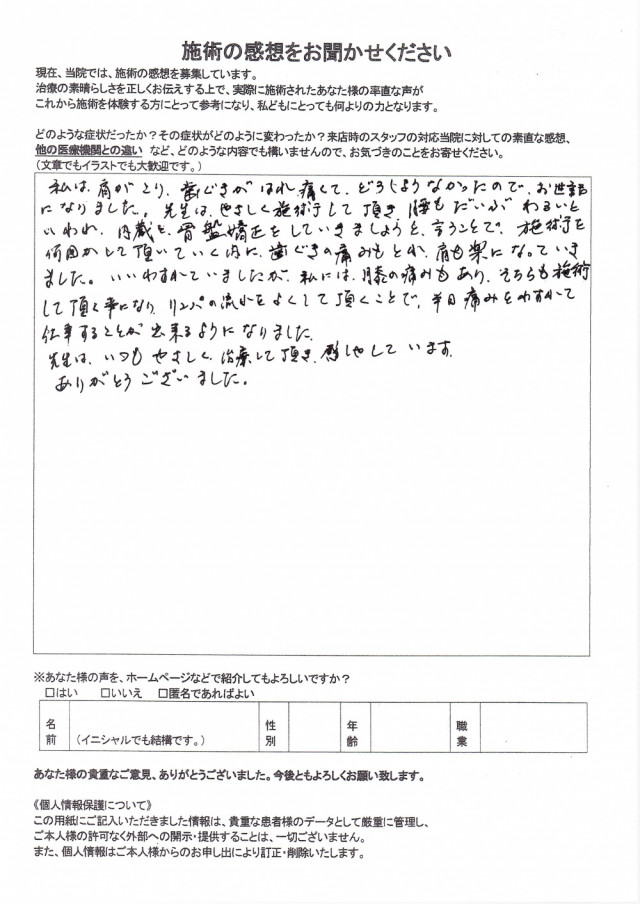 施術の感想をお聞かせください
現在、当院では、施術の感想を募集しています。
治療の素晴らしさを正しくお伝えする上で、実際に施術されたあなた様の率直な声が
これから施術を体験する方にとって参考になり、私どもにとっても何よりの力となります。
どのような症状だったか？その症状がどのように変わったか？来店時のスタッフの対応当院に対しての素直な感想、
他の医療機関との違い など、どのような内容でも構いませんので、お気づきのことをお寄せください。
（文章でもイラストでも大歓迎です。）
私は、肩がこり、歯ぐきがはれ痛くて、どうしようもなかったので、お世話
になりました。先生は、やさしく施術して頂き、腰もだいぶわるいと
いわれ、内蔵と、骨盤矯正をしていきましようと、言うことで、施術を
何回かして頂いていく内に、歯ぐきの痛みもとれ、肩も楽になっていき
ました。いいわすれていましたが、私には、膝の痛みもあり、そちらも施術
して頂く事になり、リンパの流れをよくして頂くことで、半日痛みをわすれて
仕事することが出来るようになりました。
先生は、いつもやさしく、治療して頂き、感しやしています。
ありがとうございました。
※あなた様の声を、ホームページなどで紹介してもよろしいですか？
□はい □いいえ □匿名であればよい
名前 （イニシャルでも結構です。） 性別 年齢 職業
あなた様の貴重なご意見、ありがとうございました。今後ともよろしくお願い致します。
《個人情報保護について》
この用紙にご記入いただきました情報は、貴重な患者様のデータとして厳重に管理し、
ご本人様の許可なく外部への開示・提供することは、一切ございません。
また、個人情報はご本人様からのお申し出により訂正・削除いたします。